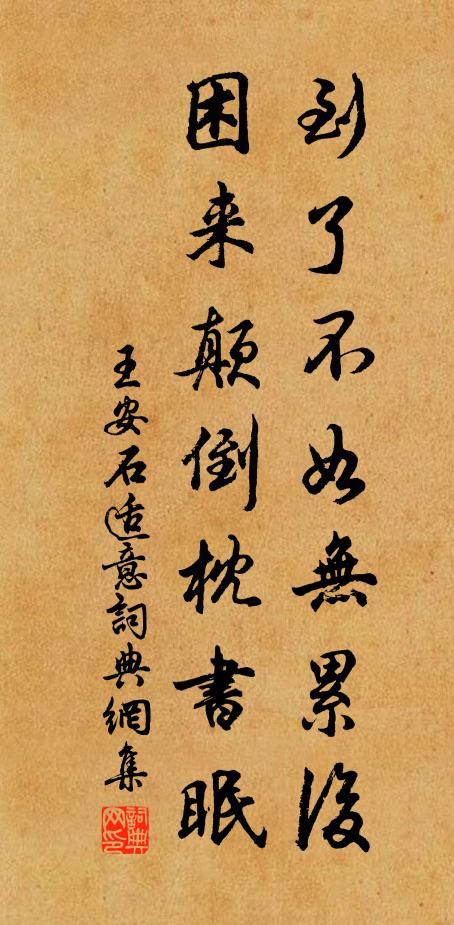 到了不如無累後
困来顛倒枕書眠
王安石適意詞典網集
詞典网印